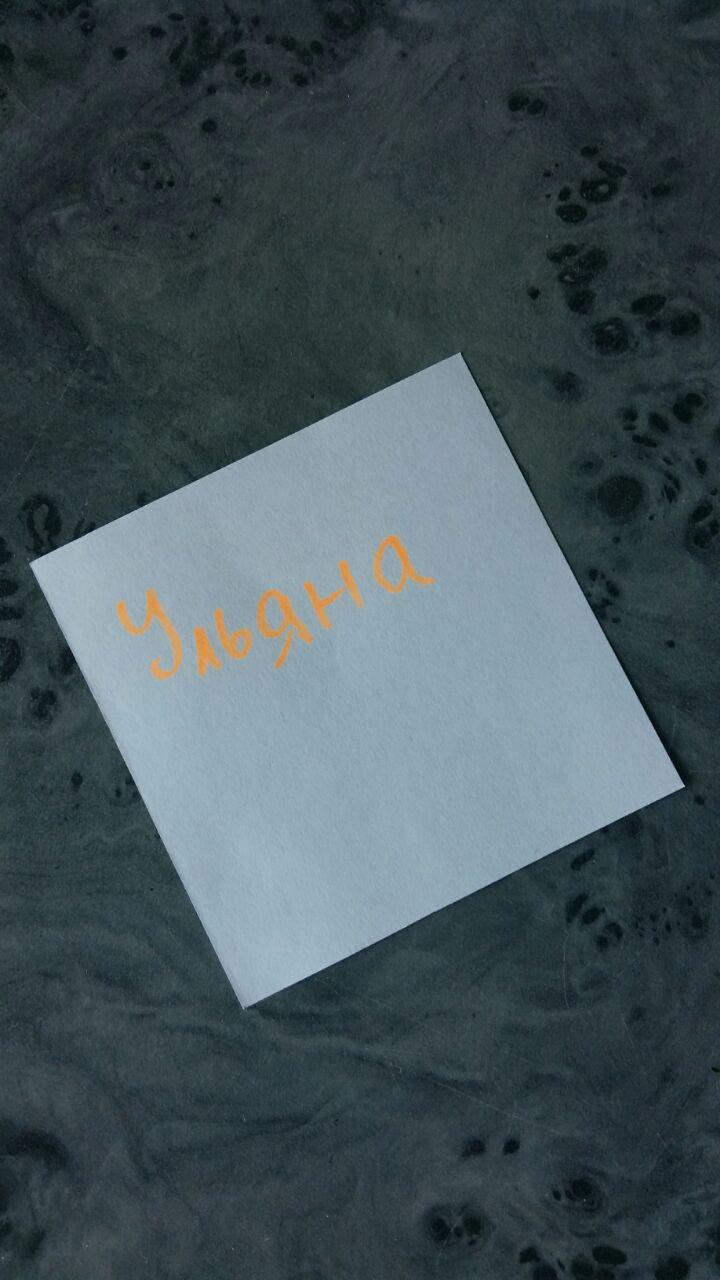 Ульяна